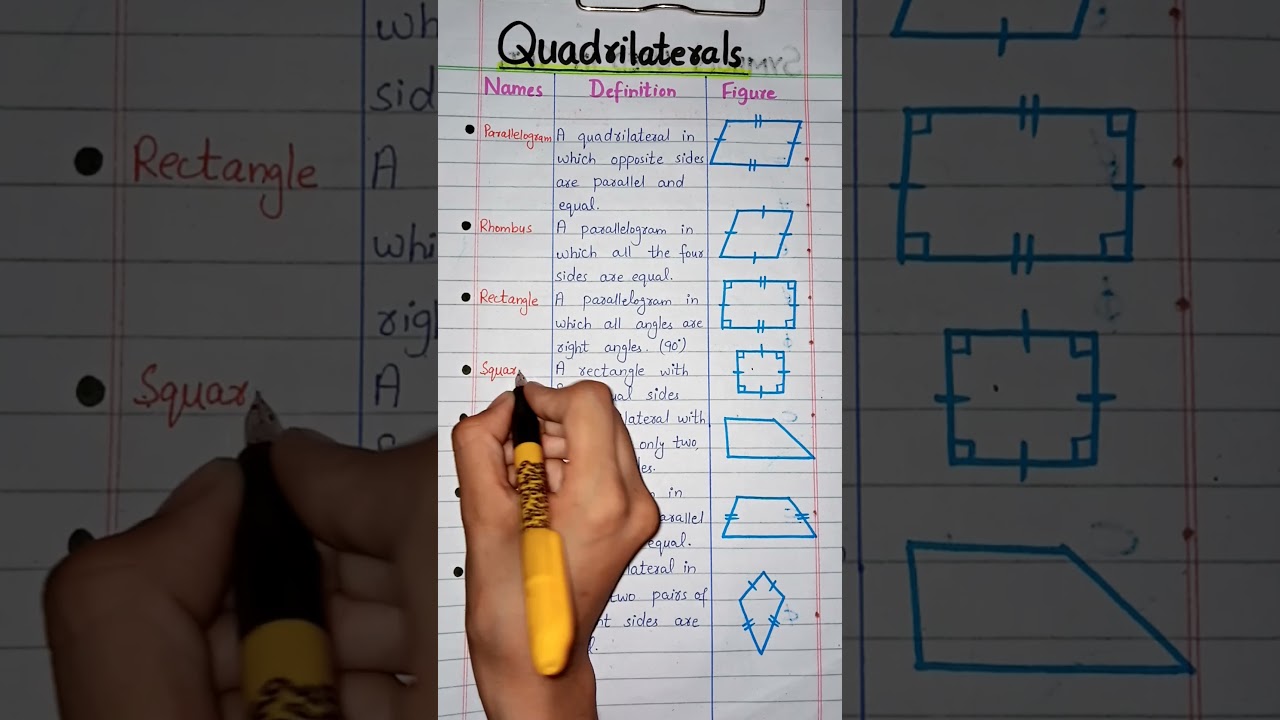 Quadrilaterals
Names Definition Figure
Parallelogram A quadrilateral in
which opposite sides
are parallel and
equal.
Rhombus A parallelogram in
which all the four
sides are equal.
Rectangle A parallelogram in
which all angles are
right angles. (90°)
Squar A rectangle with
sides
with
only two
in
equal.
in
two pairs of
sides are
Rectangle A
Squar A